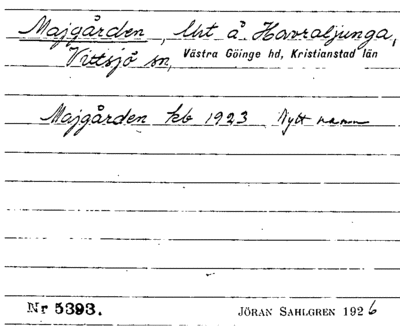 Majgården, lht å Havraljunga,
Vittsjö sn, Västra Göinge hd, Kristianstad län
Majgården feb 1923 Nytt namn
Nr 5393. JÖRAN SAHLGREN 1926